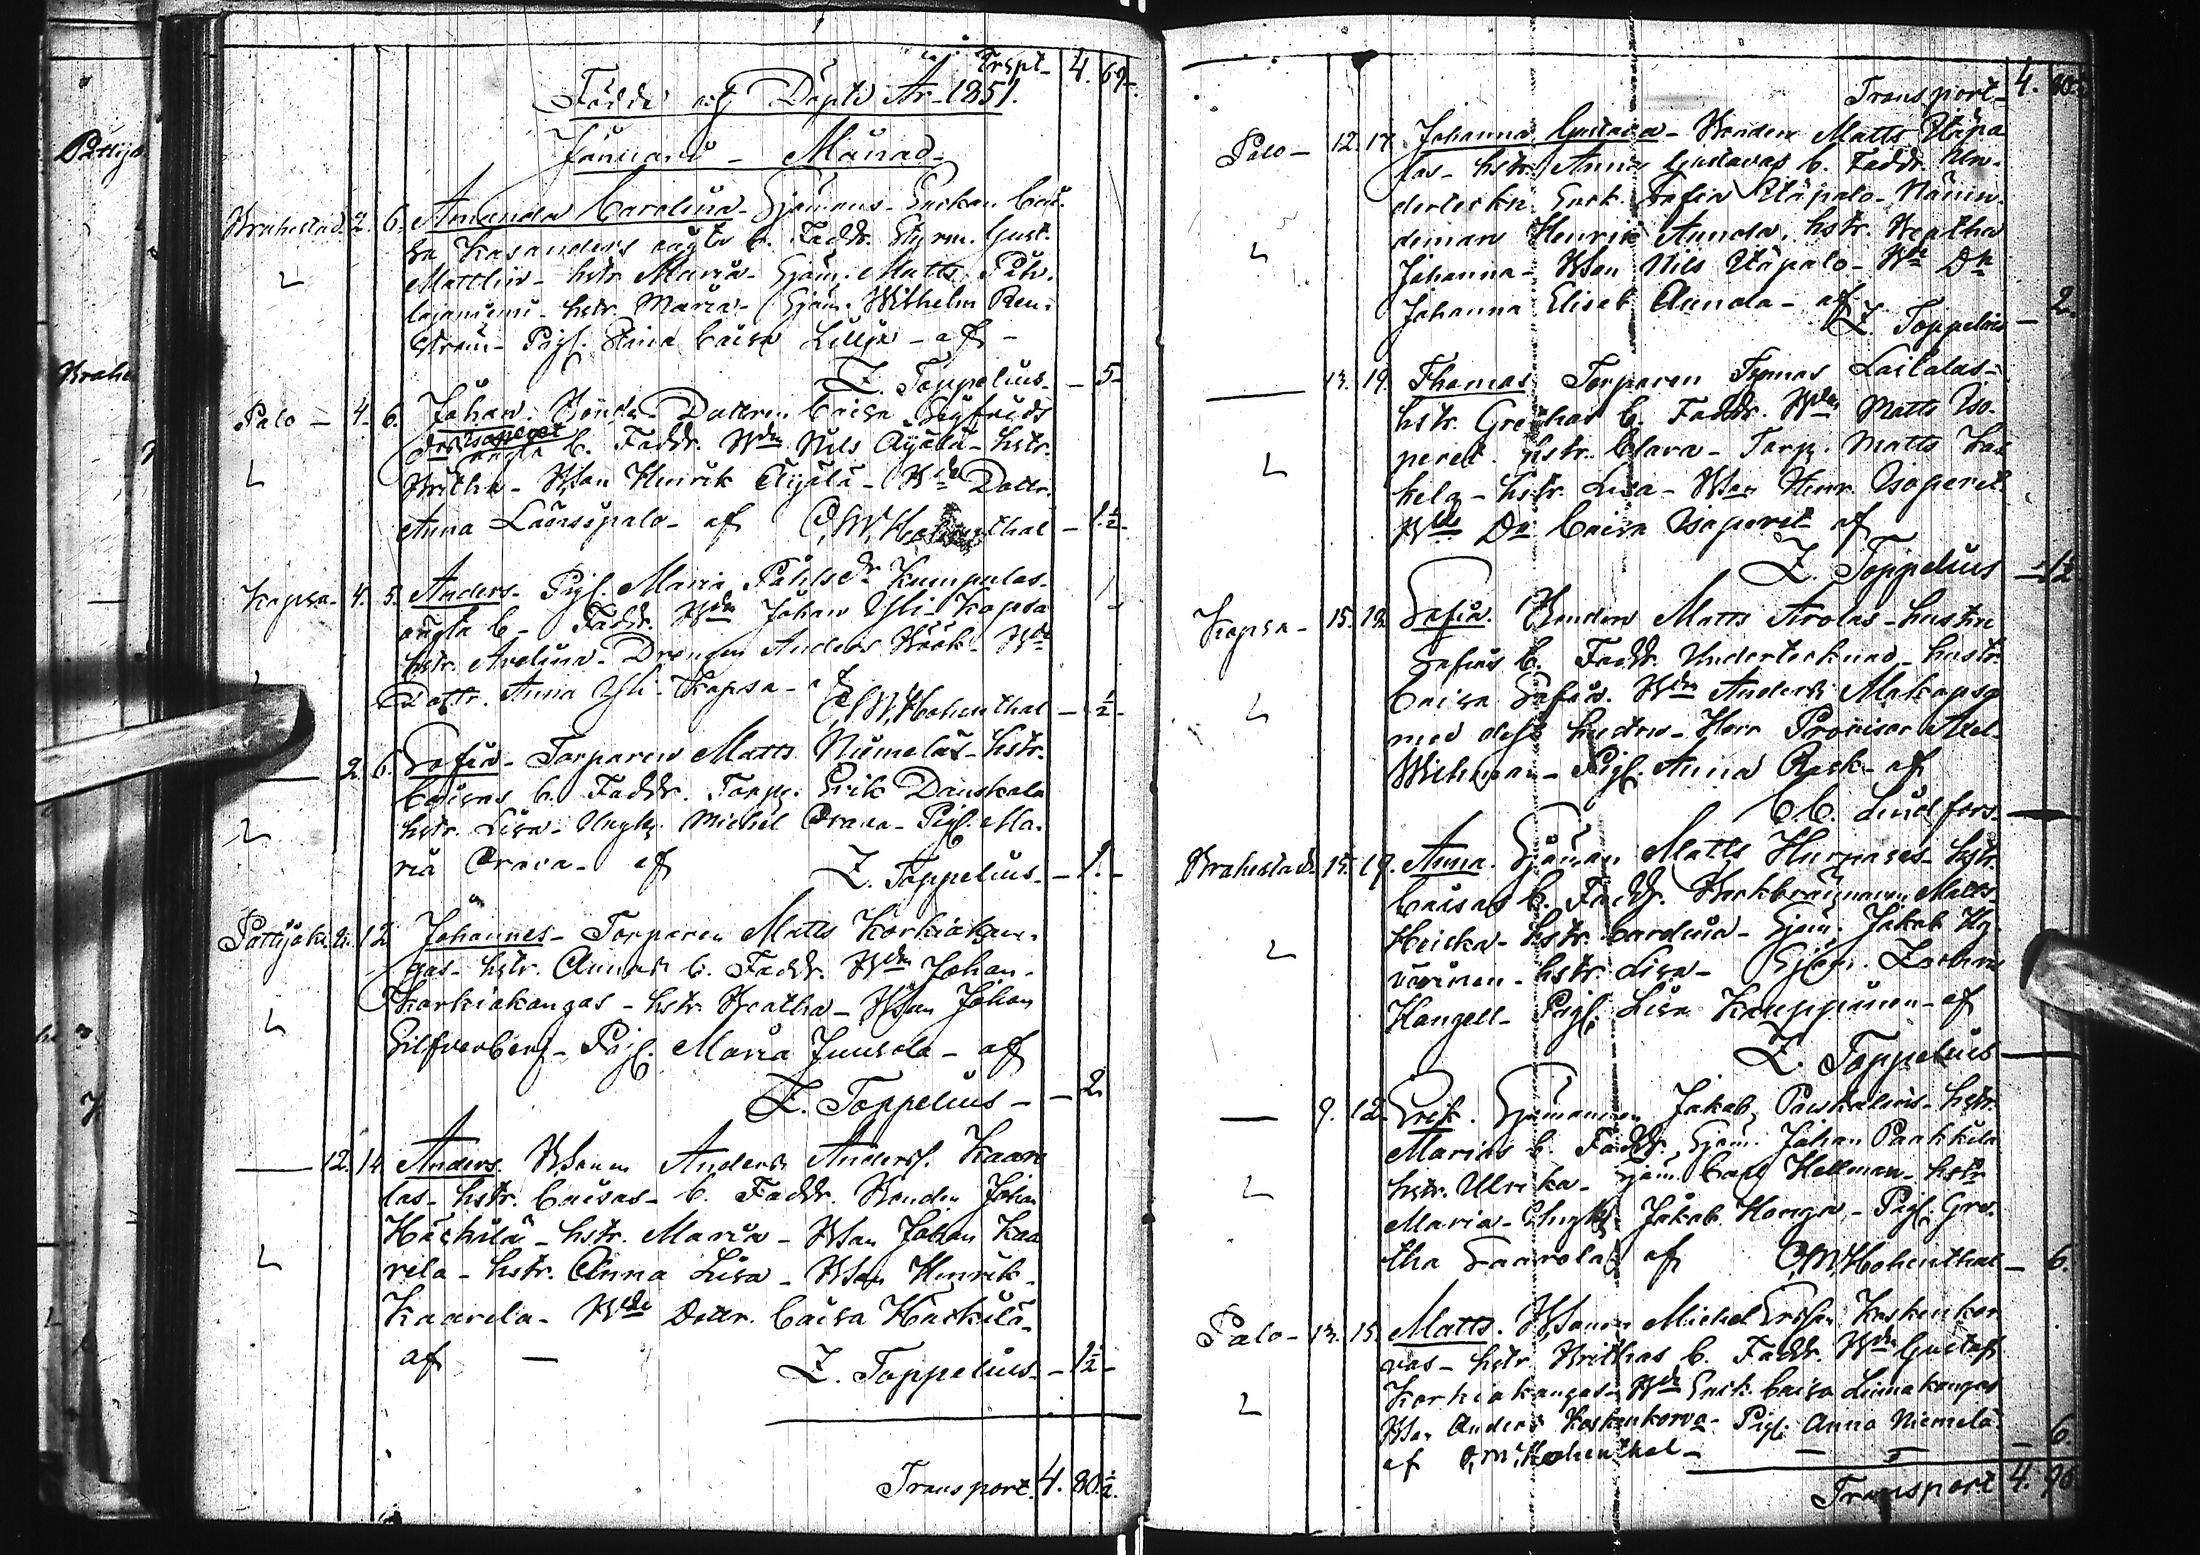 Trspt 4. 69
Födde och Döpte År 1851.
Januari Månad
Brahestad 2. 6. Amanda Carolina. Sjömans Enkan Cai-
sa Kasanders oägta b. Faddr. Styrm. Gust.
Mattlin - hstr Maria - Sjöm. Matts
hstr. Maria - Sjöm. Wilhelm Ren-
ström - Pig. Stina Caisa Lilja - af -
Z. Toppelius - 5 -
Palo - 4. 6. Johan. Bonde Dottren Caisa Sigfrids
dr Isoperet oägta b. Faddr. Bdn Nils Äijälä - hstr.
Britha - BSon Henrik Äijälä - Bde Dottr.
Anna Länsipalo - af C.W. Hohenthal - 1 1/2 -
Kopsa - 4. 5. Anders - Pig. Maria Påhlsdr Kumpulas
oägta b - Faddr. Bdn Johan Yli-Kopsa
hstr. Avelina - Drengen Anders Bde
Dottr. Anna Yli-Kopsa - af
C.W. Hohenthal - 1/2 -
2. 6. Sofia - Torparen Matts Niemeläs - hstr.
Caisas b. Faddr. Torp. Erik Danskala
hstr. Lisa - Ungk. Michel Orava - Pig. Ma-
ria Orava - af Z. Toppelius - 1. -
Pattijoki 12 Johannes - Torparen Matts Korkiakan-
gas - hstr. Annas b. Faddr. Bdn Johan
Korkiakangas - hstr. Beatha - BSon Johan
Silfverberg - Pig. Maria Juusola - af
Z. Toppelius - 2
12. 14 Anders. BSonen Anders Anderss. Kaare
las - hstr. Caisas - b. Faddr. Bonden Johan
Häckilä - hstr. Maria - BSon Johan Kaa
rela - hstr. Anna Lisa - BSon Henrik
Kaarela - Bde Dottr. Caisa Häckilä -
af - Z. Toppelius - 1 1/2 -
Transport. 4. 80 1/2.
Transport 4. 80 1/2
Palo - 12. 17. Johanna Gustava - Bonden Matts Ylipa
los - hstr. Anna Gustavas b. Faddr. Un-
derteckn. Enk. Sofia Ylipalo - Nämn-
deman Henrik Annola, hstr. Beatha
Johanna - BSon Nils Ylipalo - Bde Dr
Johanna Elisab. Annola - af
Z. Toppelius - 2.
13. 19. Thomas. Torparen Thomas Lailalas -
hstr. Grethas b. Faddr. Bdn Matts Iso-
peret. hstr. Clara - Torp. Matts Kos
kela - hstr. Lisa - BSon Henr. Isoperet
Bde Dr Caisa Isoperet af
Z. Toppelius - 1 1/2
Kopsa - 15. 19. Sofia. Bonden Matts Arolas - hustru
Sofias b. Faddr. Undertecknad - hustr.
Caisa Sofia. Bdn Anders Alakopsa
med dess hustru - Herr Provisor Axel
Wichman - Pig. Anna Rask - af
C.C. Lindfors -
Brahestad. 15. 19. Anna. Sjöman Matts Hurnases - hstr.
Caisas b. Faddr. Matts
Heicka - hstr. Carolina - Sjöm. Jakob Hy
värinen - hstr. Lisa - Sjöm. Zachris
Hangell - Pig. Lisa Kauppinen - af
Z. Toppelius -
9. 12. Erik. Sjömannen Jakob hstr.
Marias b. Faddr. Sjöm. Johan Paakkila
hstr. Ulrika - Sjöm. Carl Hellman - hstr
Maria - Ungk. Jakob Honga - Pig. Gre-
tha Saarela af C.W. Hohenthal - 6.
Palo - 13. 15. Matts. BSonen Michel Erson Koskenkor
vas - hstr Brithas b. Faddr. Bdn Gustaf
Korkiakangas - Bde Enk. Caisa Linnakangas
BSon Anders Koskenkorva - Pig. Anna Niemelä
af C.W. Hohenthal - 6.
Transport 4. 96